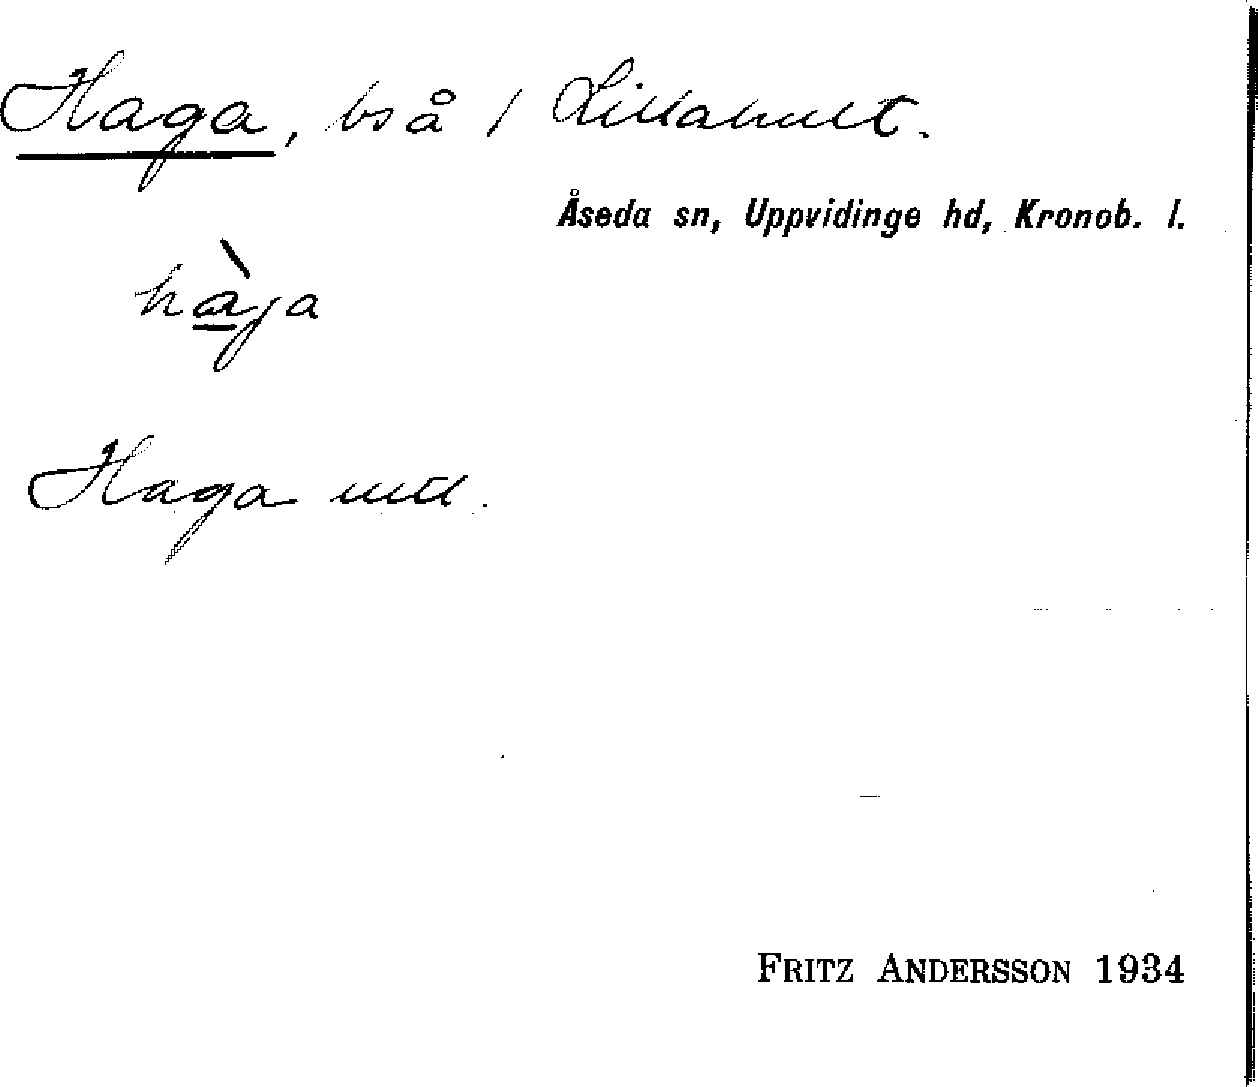 Haga, bs å / Lillahult.
Åseda sn, Uppvidinge hd, Kronob. l.
hàga
Haga
FRITZ ANDERSSON 1934